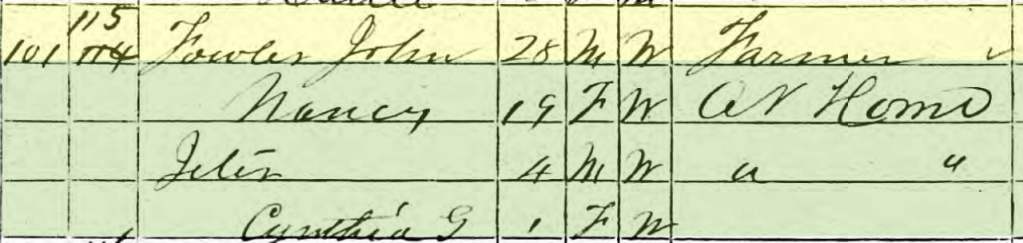 115
101 114 Fowler John 28 M W Farmer ✓
Nancy 19 F W At Home
Jeter 4 M W " "
Cynthia G 1 F W